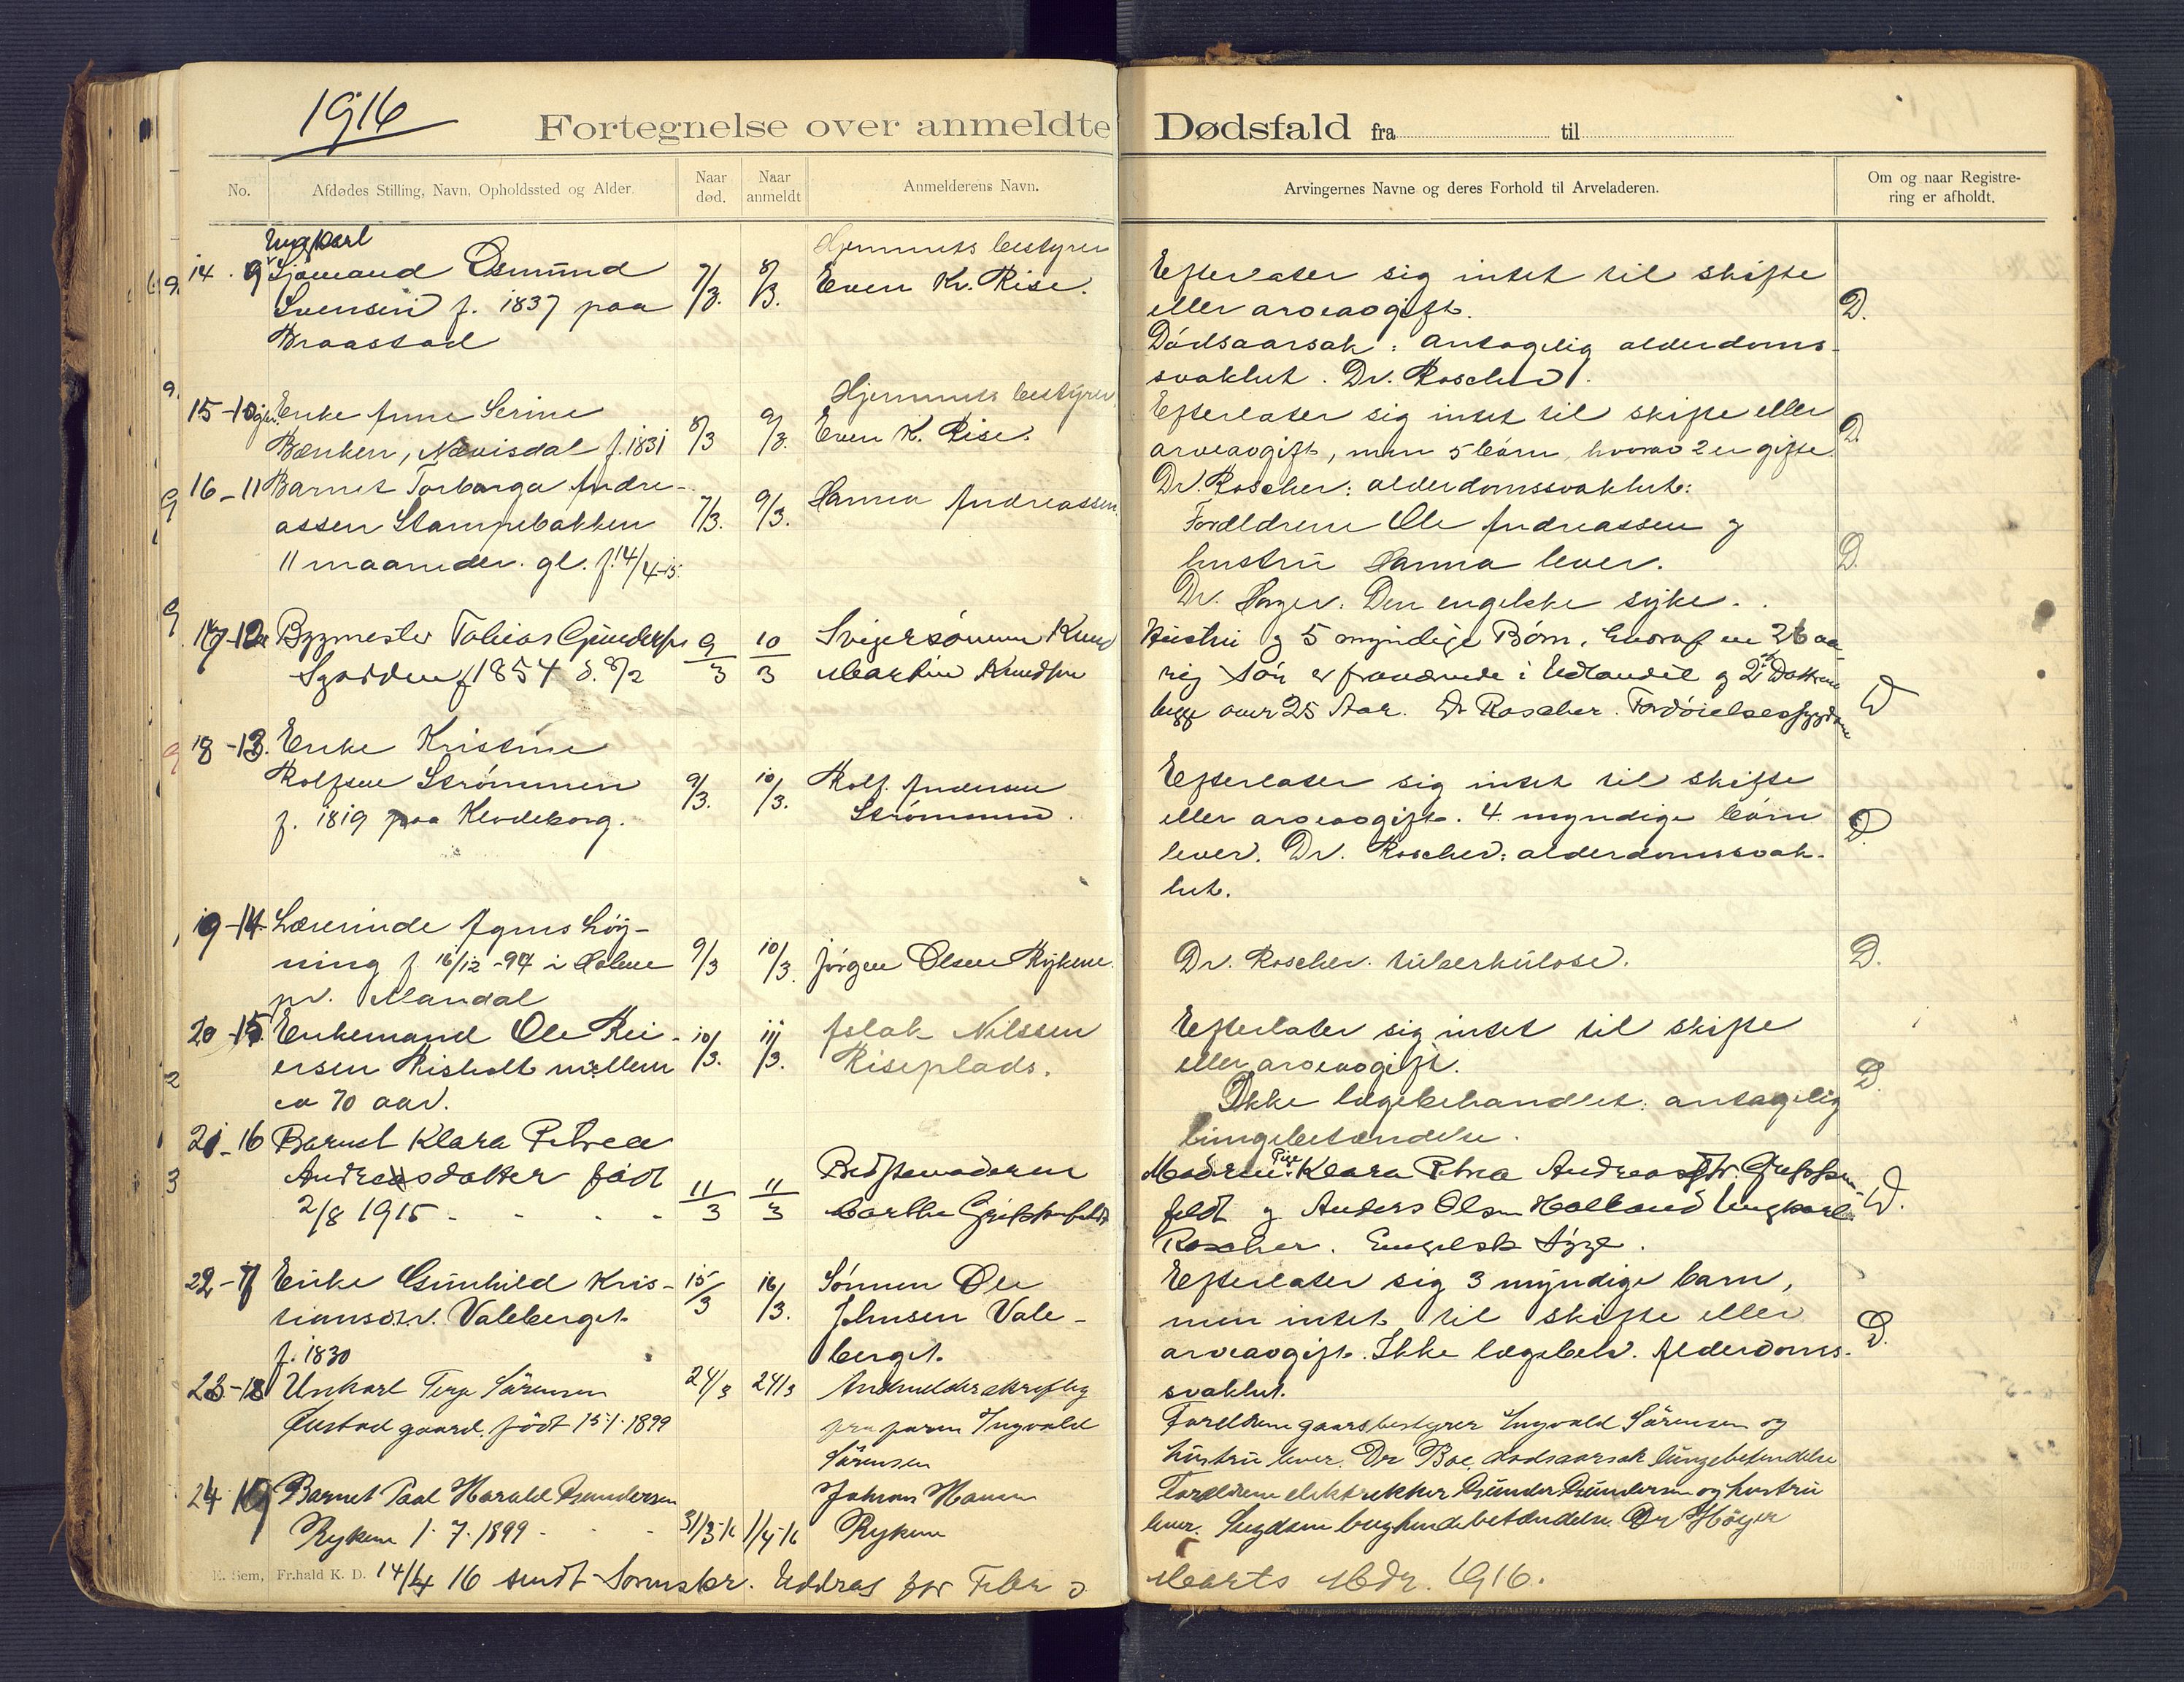 1916
Fortegnelse over anmeldte Dødsfald fra til
No. Afdødes Stilling, Navn, Opholdssted og Alder. Naar død. Naar anmeldt Anmelderens Navn. Arvingernes Navne og deres Forhold til Arveladeren. Om og naar Registre-
ring er afholdt.
Ungkarl
14 . 9 Sjømand Osmund 7/3. 8/3. Hjemmets bestyrer
Svensen f. 1837 paa Even Kr. Rise.
Braastad
Efterlater sig intet til skifte
eller arveavgift. D.
Dødsaarsak: antagelig alderdoms-
svakhet. Dr. Roscher.
15 - 10 Enke Anne Serine 8/3 9/3. Hjemmets bestyrer
Bænken, Nævisdal f. 1831 Even K. Rise.
Efterlater sig intet til skifte eller
arveavgift, men 5 børn, hvorav 2 er gifte. D.
Dr. Roscher: alderdomssvakhet:
16 - 11 Barnet Torborga Andre- 7/3. 9/3. Hanna Andreassen
assen Stampebakken
11 maaneder gl. f. 14/4-15
Forældrene Ole Andreassen og
hustru Hanna lever. D.
Dr. Høyer. Den engelske syke.
17 - 12 Bygmester Tobias Gundersen 9/3 10/3 Svigersønnen Knud
f 1854 Martin Knudsen
Hustru og 5 myndige Børn, hvoraf en 26 aa-
rig Søn er fraværende i Udlandet og 2 Døttrene
begge over 25 Aar. Dr Roscher. Fordøielsessygdom D
18 - 13. Enke Kristine 9/3. 10/3. Rolf Andersen
Rolfsen Strømmen Strømmen.
f. 1819 paa Klodeborg.
Efterlater sig intet til skifte
eller arveavgift. 4 myndige børn D.
lever. Dr. Roscher: alderdomssvak-
het.
19 - 14 Lærerinde Agnes Løy- 9/3 10/3. Jørgen Olsen Rykene.
ning f 16/12 -94 i Holme
pr. Mandal
Dr. Roscher. tuberkulose. D.
20 - 15 Enkemand Ole Rei- 10/3. 11/3. Aslak Nilssen
ersen Risholt mellem Riseplads.
ca 70 aar.
Efterlater sig intet til skifte
eller arveavgift. D.
Ikke lægebehandlet: antagelig
lungebetændelse.
21 - 16 Barnet Klara Petrea 11/3 11/3 Bedstemoderen
Andreasdatter født
2/8 1915
Moderen Pige Klara Petrea Andreasdtr.
feldt og Anders Olsen Holland Ungkarl D.
Roscher. Engelsk Syge.
22 - 17 Enke Gunhild Kris- 15/3 16/3. Sønnen Ole
tiansdtr. Valeberget Johnsen Vale-
f. 1830 berget.
Efterlater sig 3 myndige barn,
men intet til skifte eller D.
arveavgift. Ikke lægebeh. Alderdoms-
svakhet.
23 - 18 Unkarl Terje Sørensen 24/3 24/3 Anmeldt skriftlig
gaard. født 15-1-1899 fra faren Ingvald
Sørensen
Forældrene gaarsbestyrer Ingvald Sørensen og
hustru lever. Dr Boe, dødsaarsak lungebetendelse
24 19 Barnet Paal Harald Gundersen 31/3-16 1/4-16
Ryken 1-7-1899 Ryken
Forældrene Gunder Gundersen og hustru
lever. Sygdom bughindebetændelse. Dr Höyer
E. Sem, Fr.hald K. D. 14/4 16 sendt Sorenskr. Uddrag for Febr o
Marts Mdr. 1916.